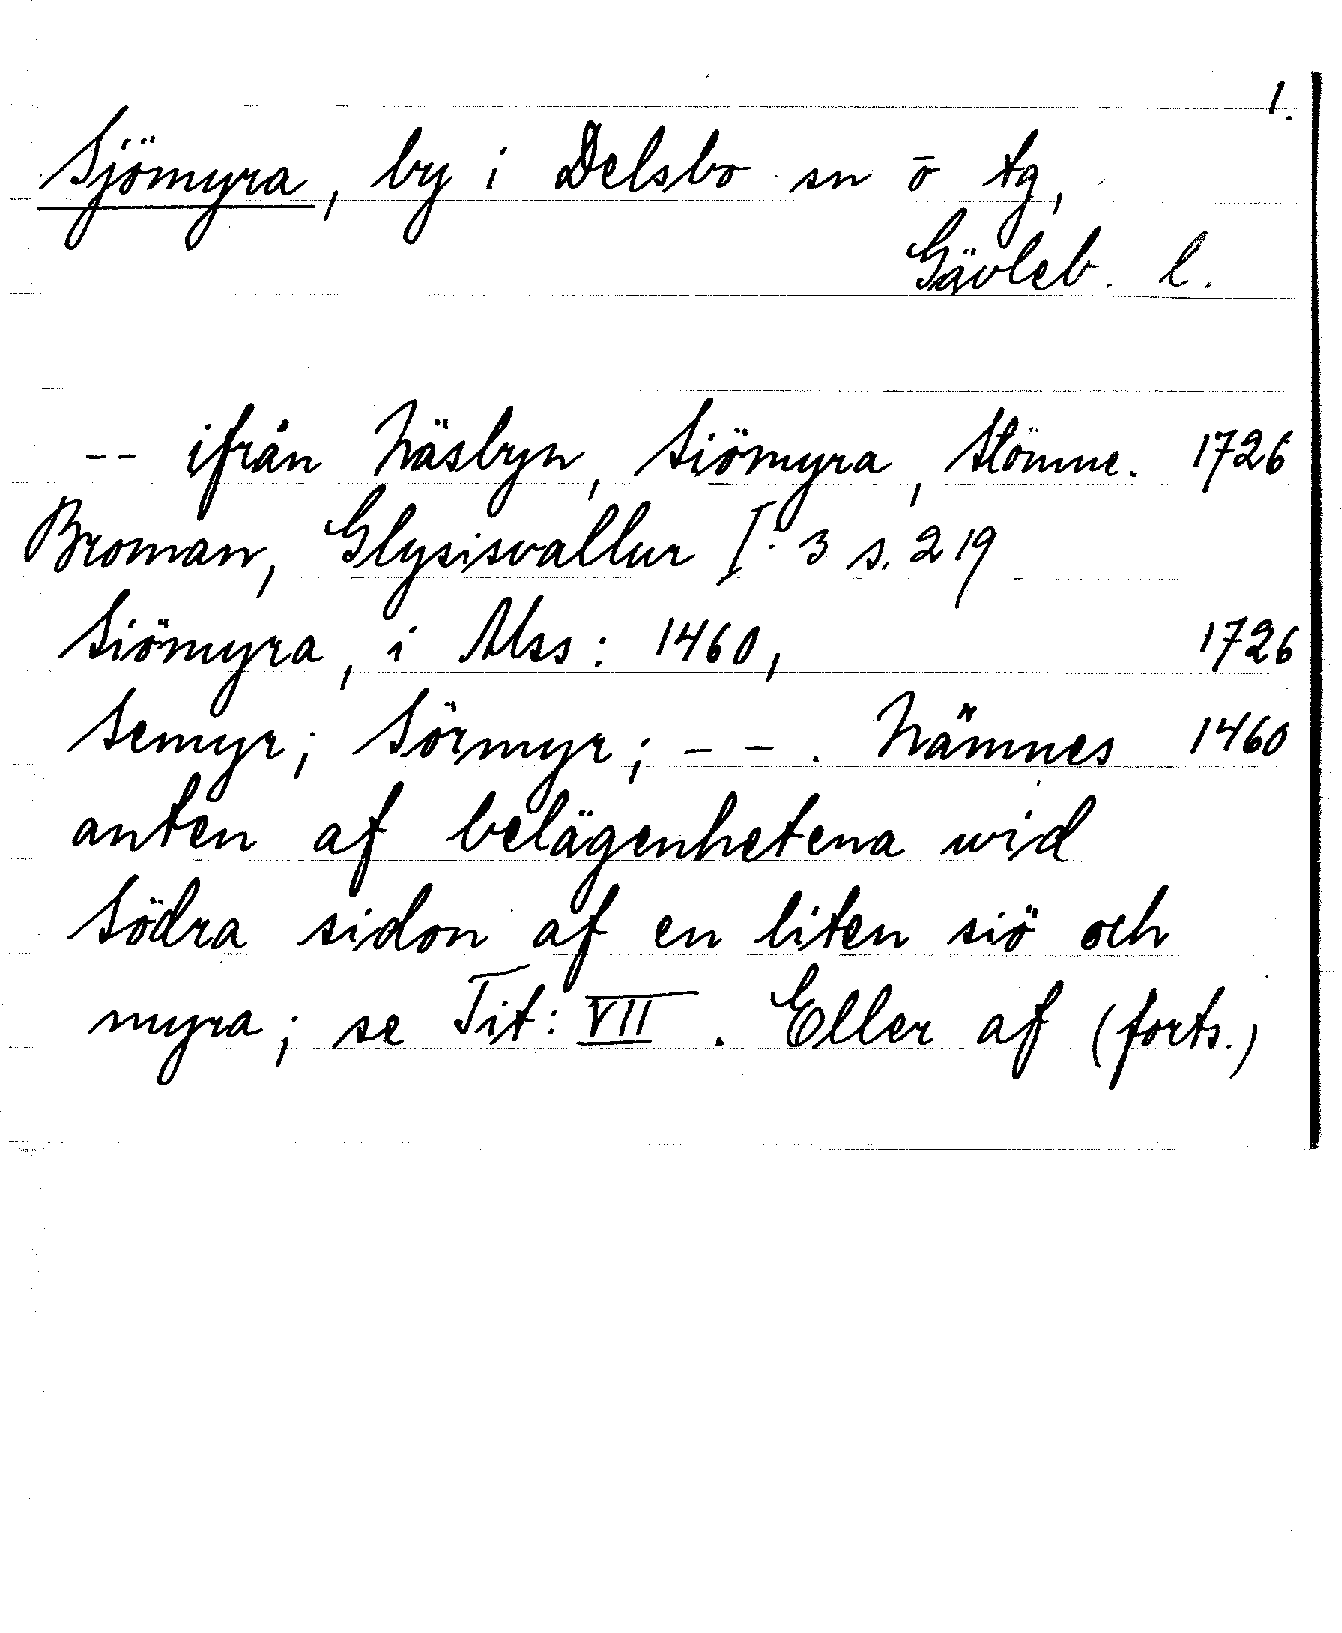 1.
Sjömyra, by i Delsbo sn o tg,
Gävleb. l.
-- ifrån Näsbyn, Siömyra, Stömne. 1726
Broman, Glysisvallur I:3 s. 219
Siömyra, i Mss: 1460, 1726
Semyr; Sörmyr; - -. Nämnes 1460
anten af belägenhetena wid
Södra sidon af en liten siö och
myra; se Tit: VII. Eller af (forts.)